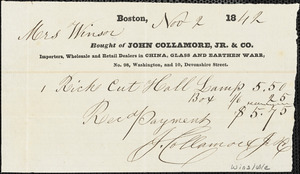 Boston, Nov 2 1842
Mrs Winsor
Bought of JOHN COLLAMORE, JR. & CO.
Importers, Wholesale and Retail Dealers in CHINA, GLASS AND EARTHEN WARE,
No. 98, Washington, and 10, Devonshire Street.
1 Rich Cut Hall Lamp 5.50
Box 25
$5.75
Recd Payment
J. Collamore Jr